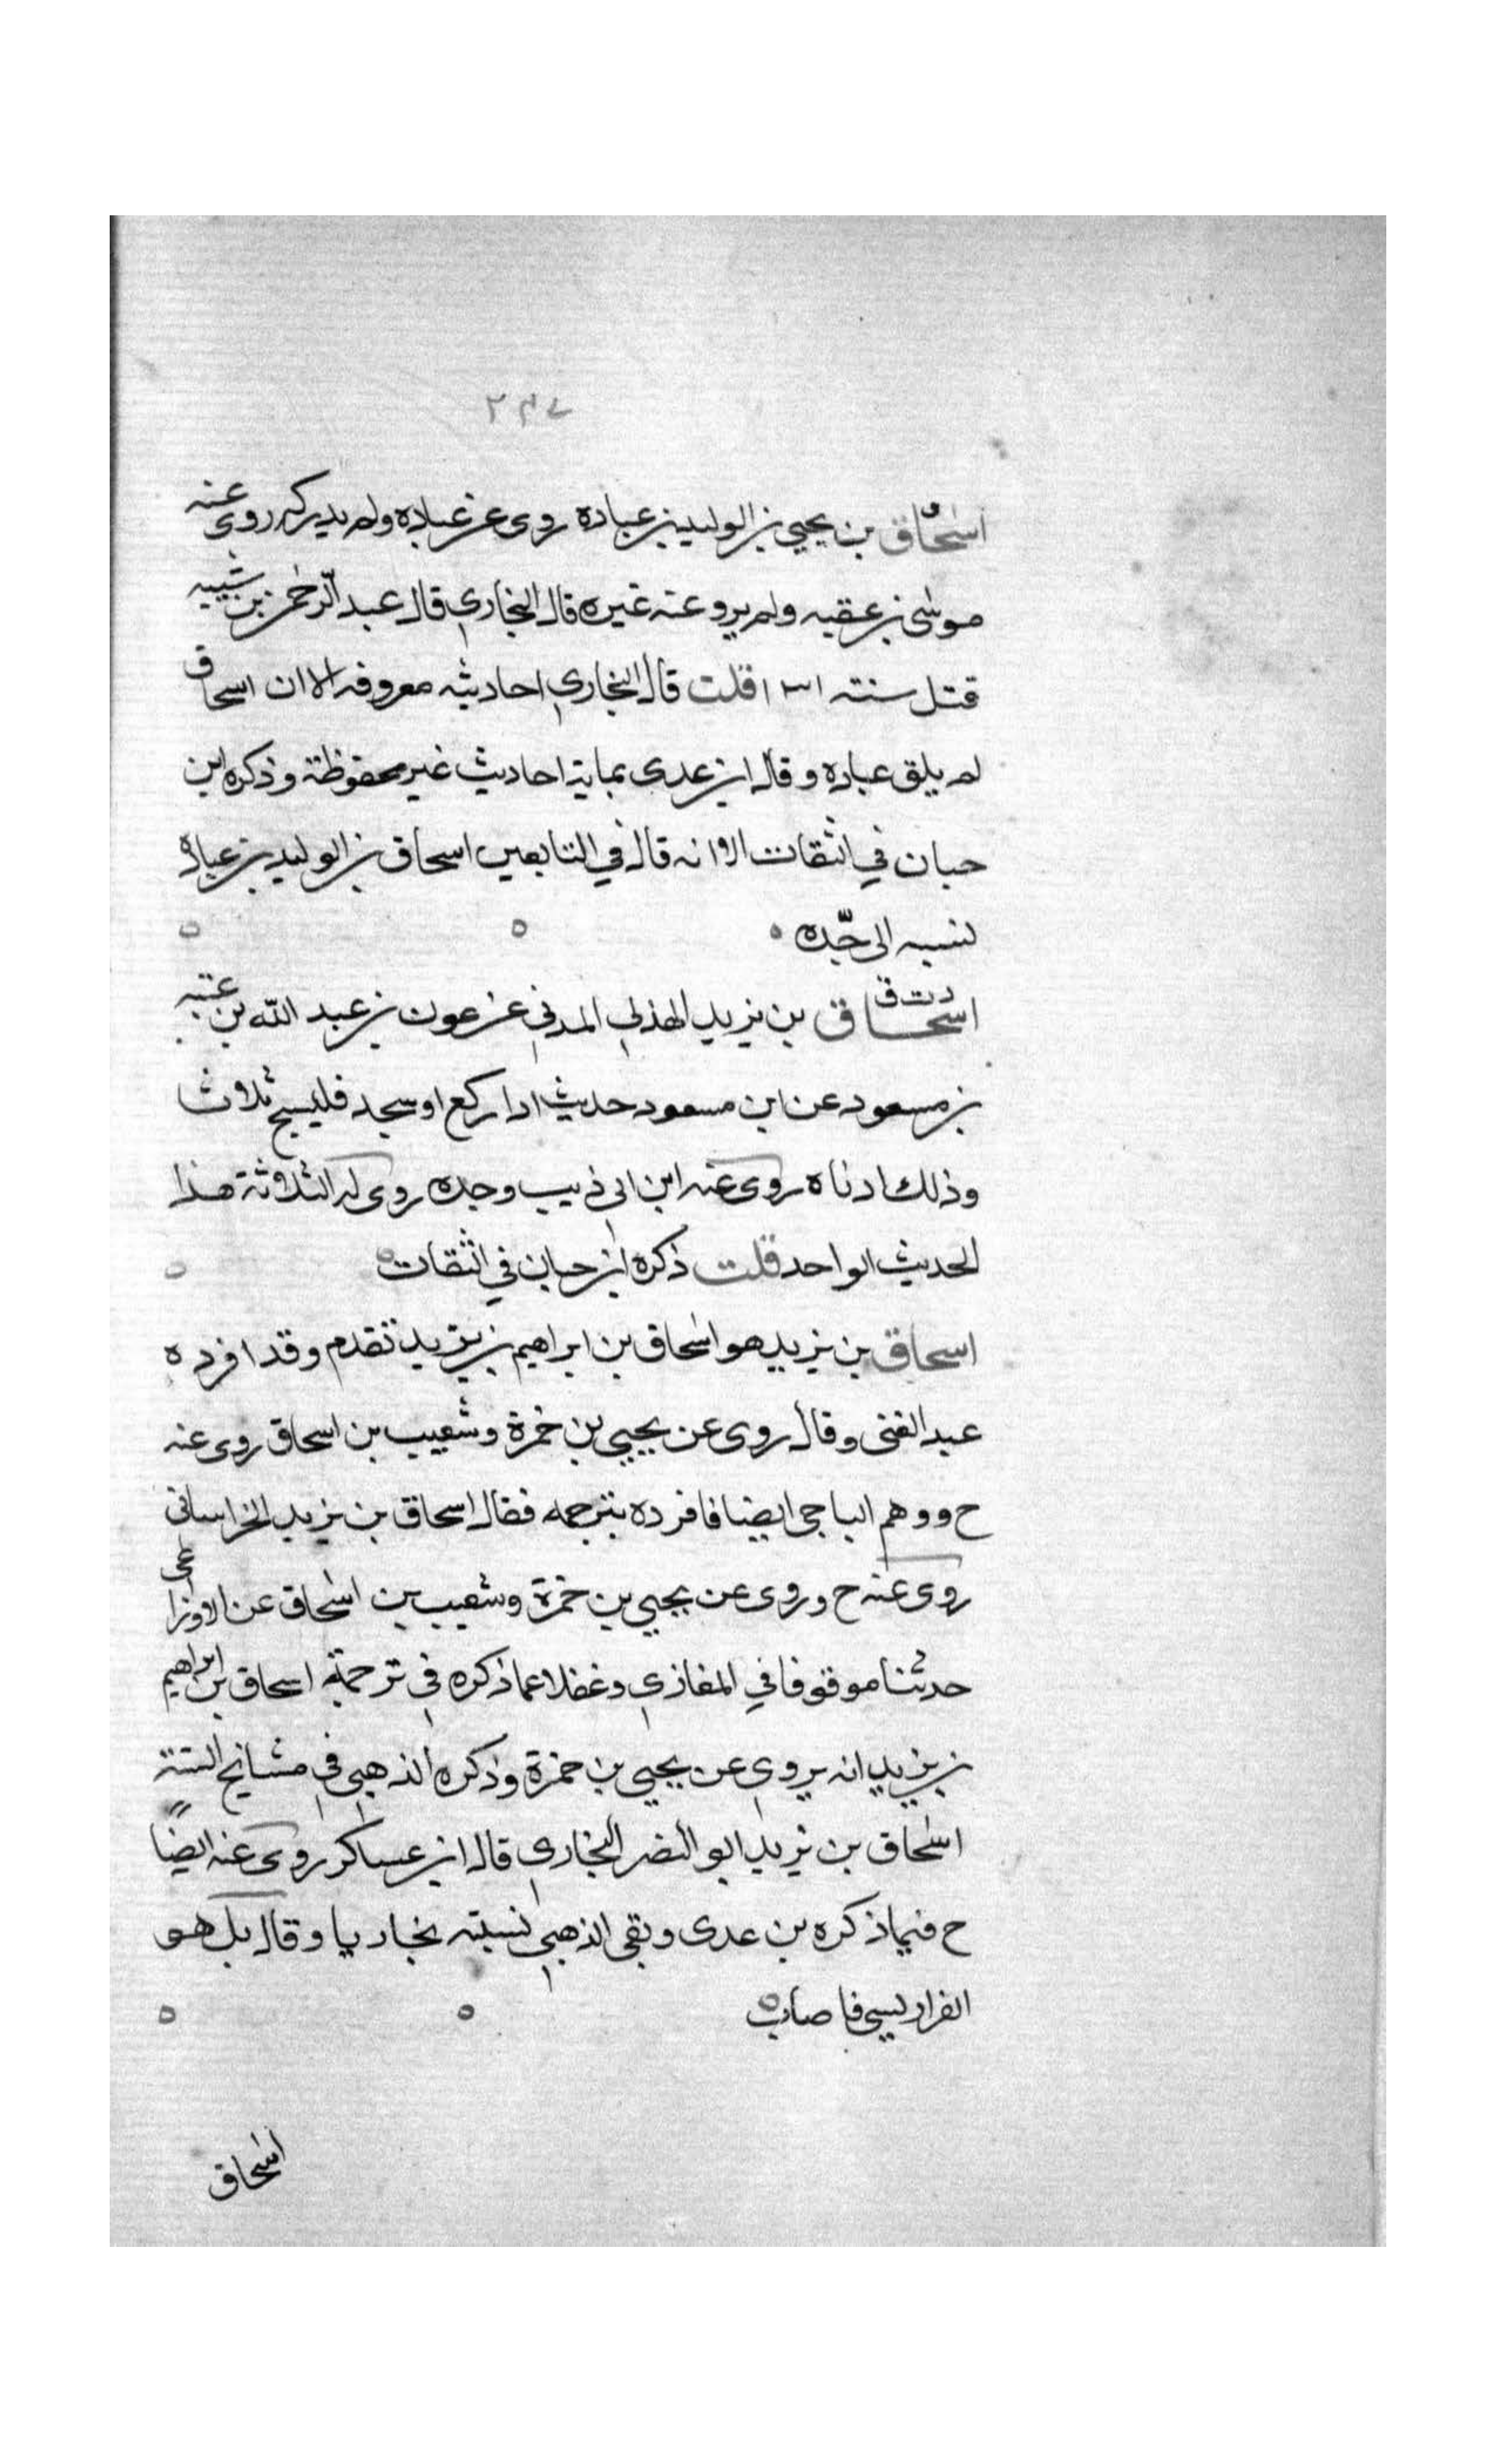 ٢٣٧
اسحاق بن يحيى بن الوليد بن عباده روى عن عباده ولم يدركه روى عنه
موسى بن عقبه ولم يرو عنه غيره قال البخاري قال عبد الرحمن بن شيبه
قتل سنته ١٣١ قلت قال البخاري احاديثه معروفه الا ان اسحاق
لم يلق عباده وقال ابن عدى عامة احاديث غير محفوظة وذكره ابن
حبان في الثقات الا انه قال في التابعين اسحاق بن الوليد بن عباده
نسبه الى جّده
د ت ق
اسحاق بن يزيد الهذلي المدني عن عون بن عبد الله بن عتبه
بن مسعود عن ابن مسعود حديث اذا ركع او سجد فليسبح ثلاث
وذلك ادناه روى عنه ابن ابي ذيب وحده روى له الثلاثة هذا
الحديث الواحد قلت ذكره ابن حبان في الثقات
اسحاق بن يزيد هو اسحاق بن ابراهيم بن يزيد تقدم وقد افرده
عبد الغنى وقال روى عن يحيى بن حمزة وشعيب بن اسحاق روى عنه
ح ووهم الباجى ايضا فافرده بترجمه فقال اسحاق بن يزيد الخراسانى
روى عنه ح وروى عن يحيى بن حمزة وشعيب بن اسحاق عن الاوزاعى
حدثنا موقوفا في المغازي وغفلا عما ذكره في ترجمة اسحاق بن ابراهيم
بن يزيد انه يروي عن يحيى بن حمزة وذكره الذهبي في مشايخ الستة
اسحاق بن يزيد ابو النضر البخاري قال ابن عساكر روى عنه ايضا
ح فيما ذكره بن عدى وبقى الذهبي نسبته بخاريا وقال بل هو
الفراديسي فاصاب
اسحاق